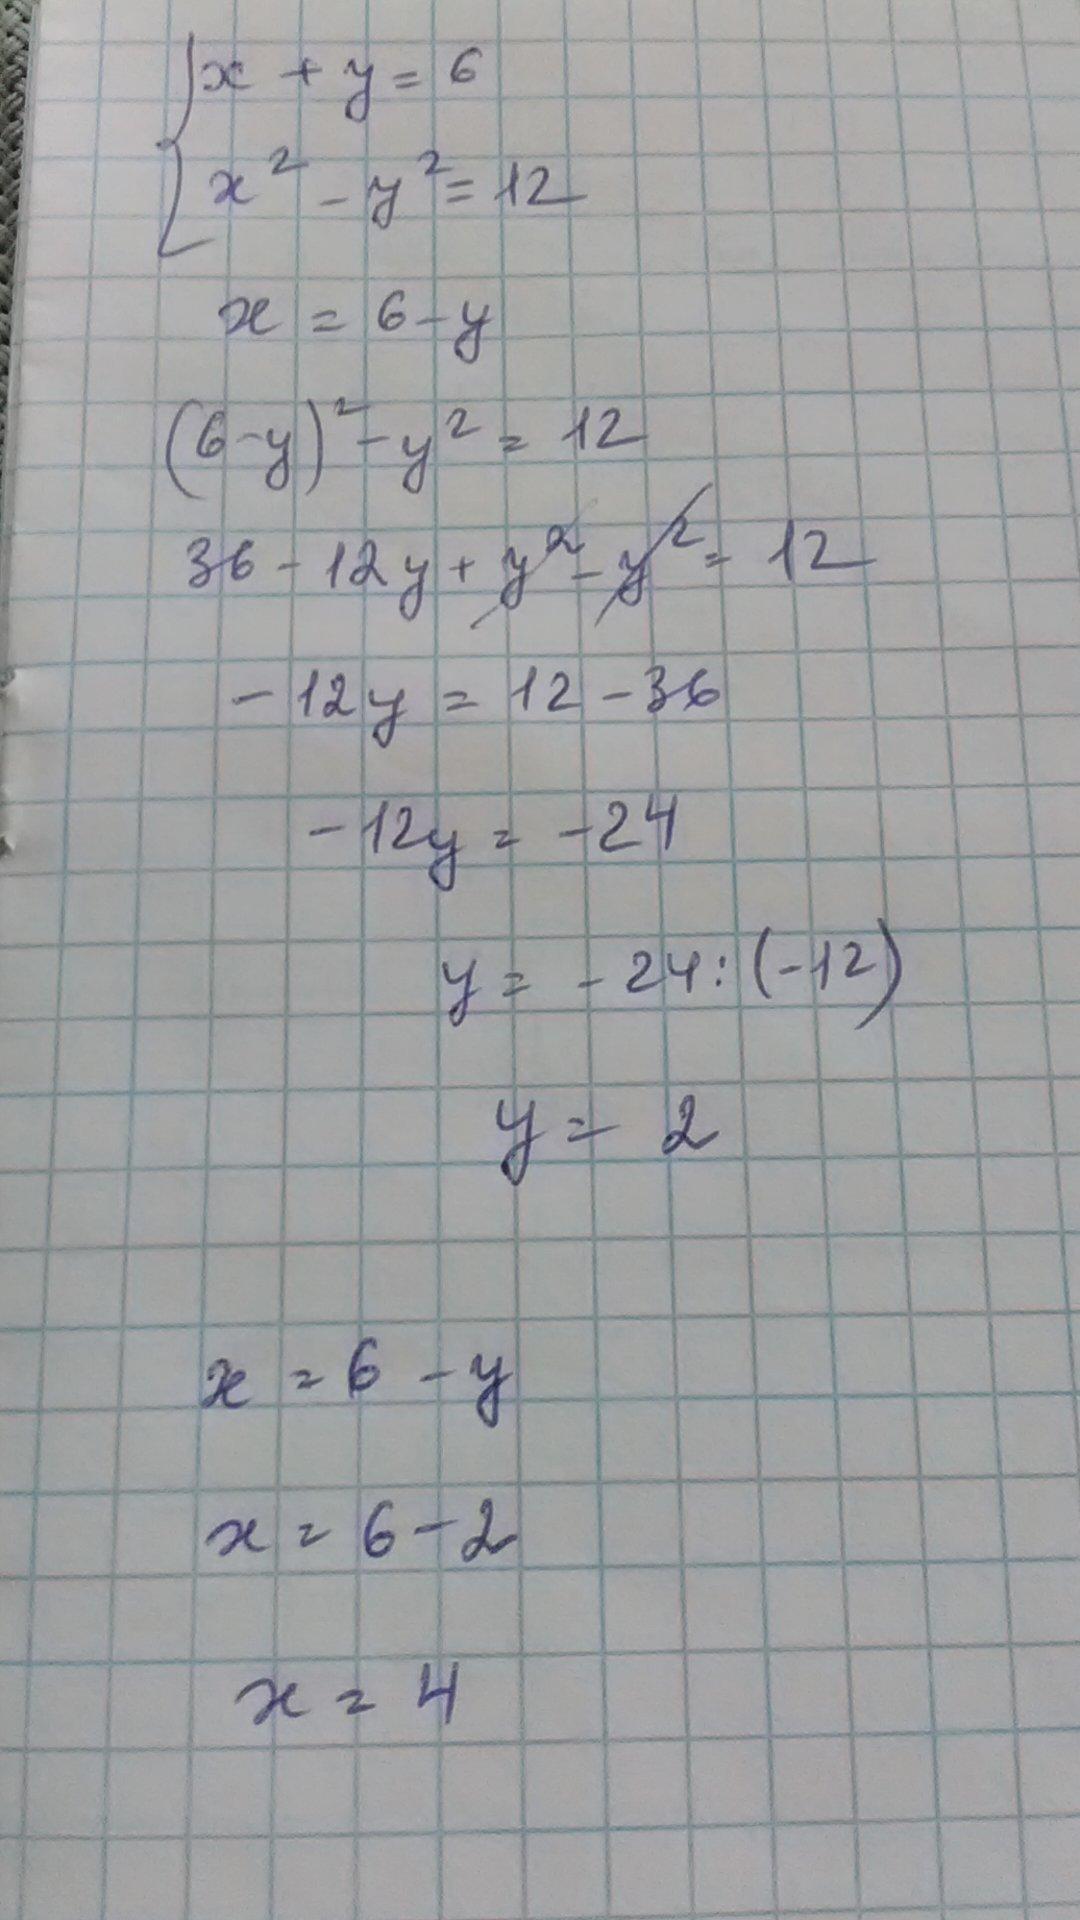 x + y = 6
x² - y² = 12
x = 6 - y
(6 - y)² - y² = 12
36 - 12y + y² - y² = 12
- 12y = 12 - 36
- 12y = - 24
y = - 24 : (-12)
y = 2
x = 6 - y
x = 6 - 2
x = 4